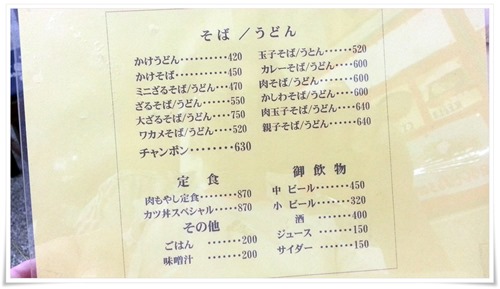 そば／うどん
かけうどん‥‥‥‥‥420
かけそば‥‥‥‥‥450
ミニざるそば/うどん‥‥470
ざるそば/うどん‥‥‥550
大ざるそば/うどん‥‥‥750
ワカメそば/うどん‥‥‥520
チャンポン‥‥‥‥630
玉子そば/うどん‥‥‥520
カレーそば/うどん‥‥‥600
肉そば/うどん‥‥‥‥600
かしわそば/うどん‥‥‥600
肉玉子そば/うどん‥‥‥640
親子そば/うどん‥‥‥640
定食
肉もやし定食‥‥‥‥870
カツ丼スペシャル‥‥‥870
その他
ごはん‥‥‥‥200
味噌汁‥‥‥‥200
御飲物
中 ビール‥‥‥‥450
小 ビール‥‥‥‥320
酒‥‥‥‥400
ジュース‥‥‥‥150
サイダー‥‥‥‥150